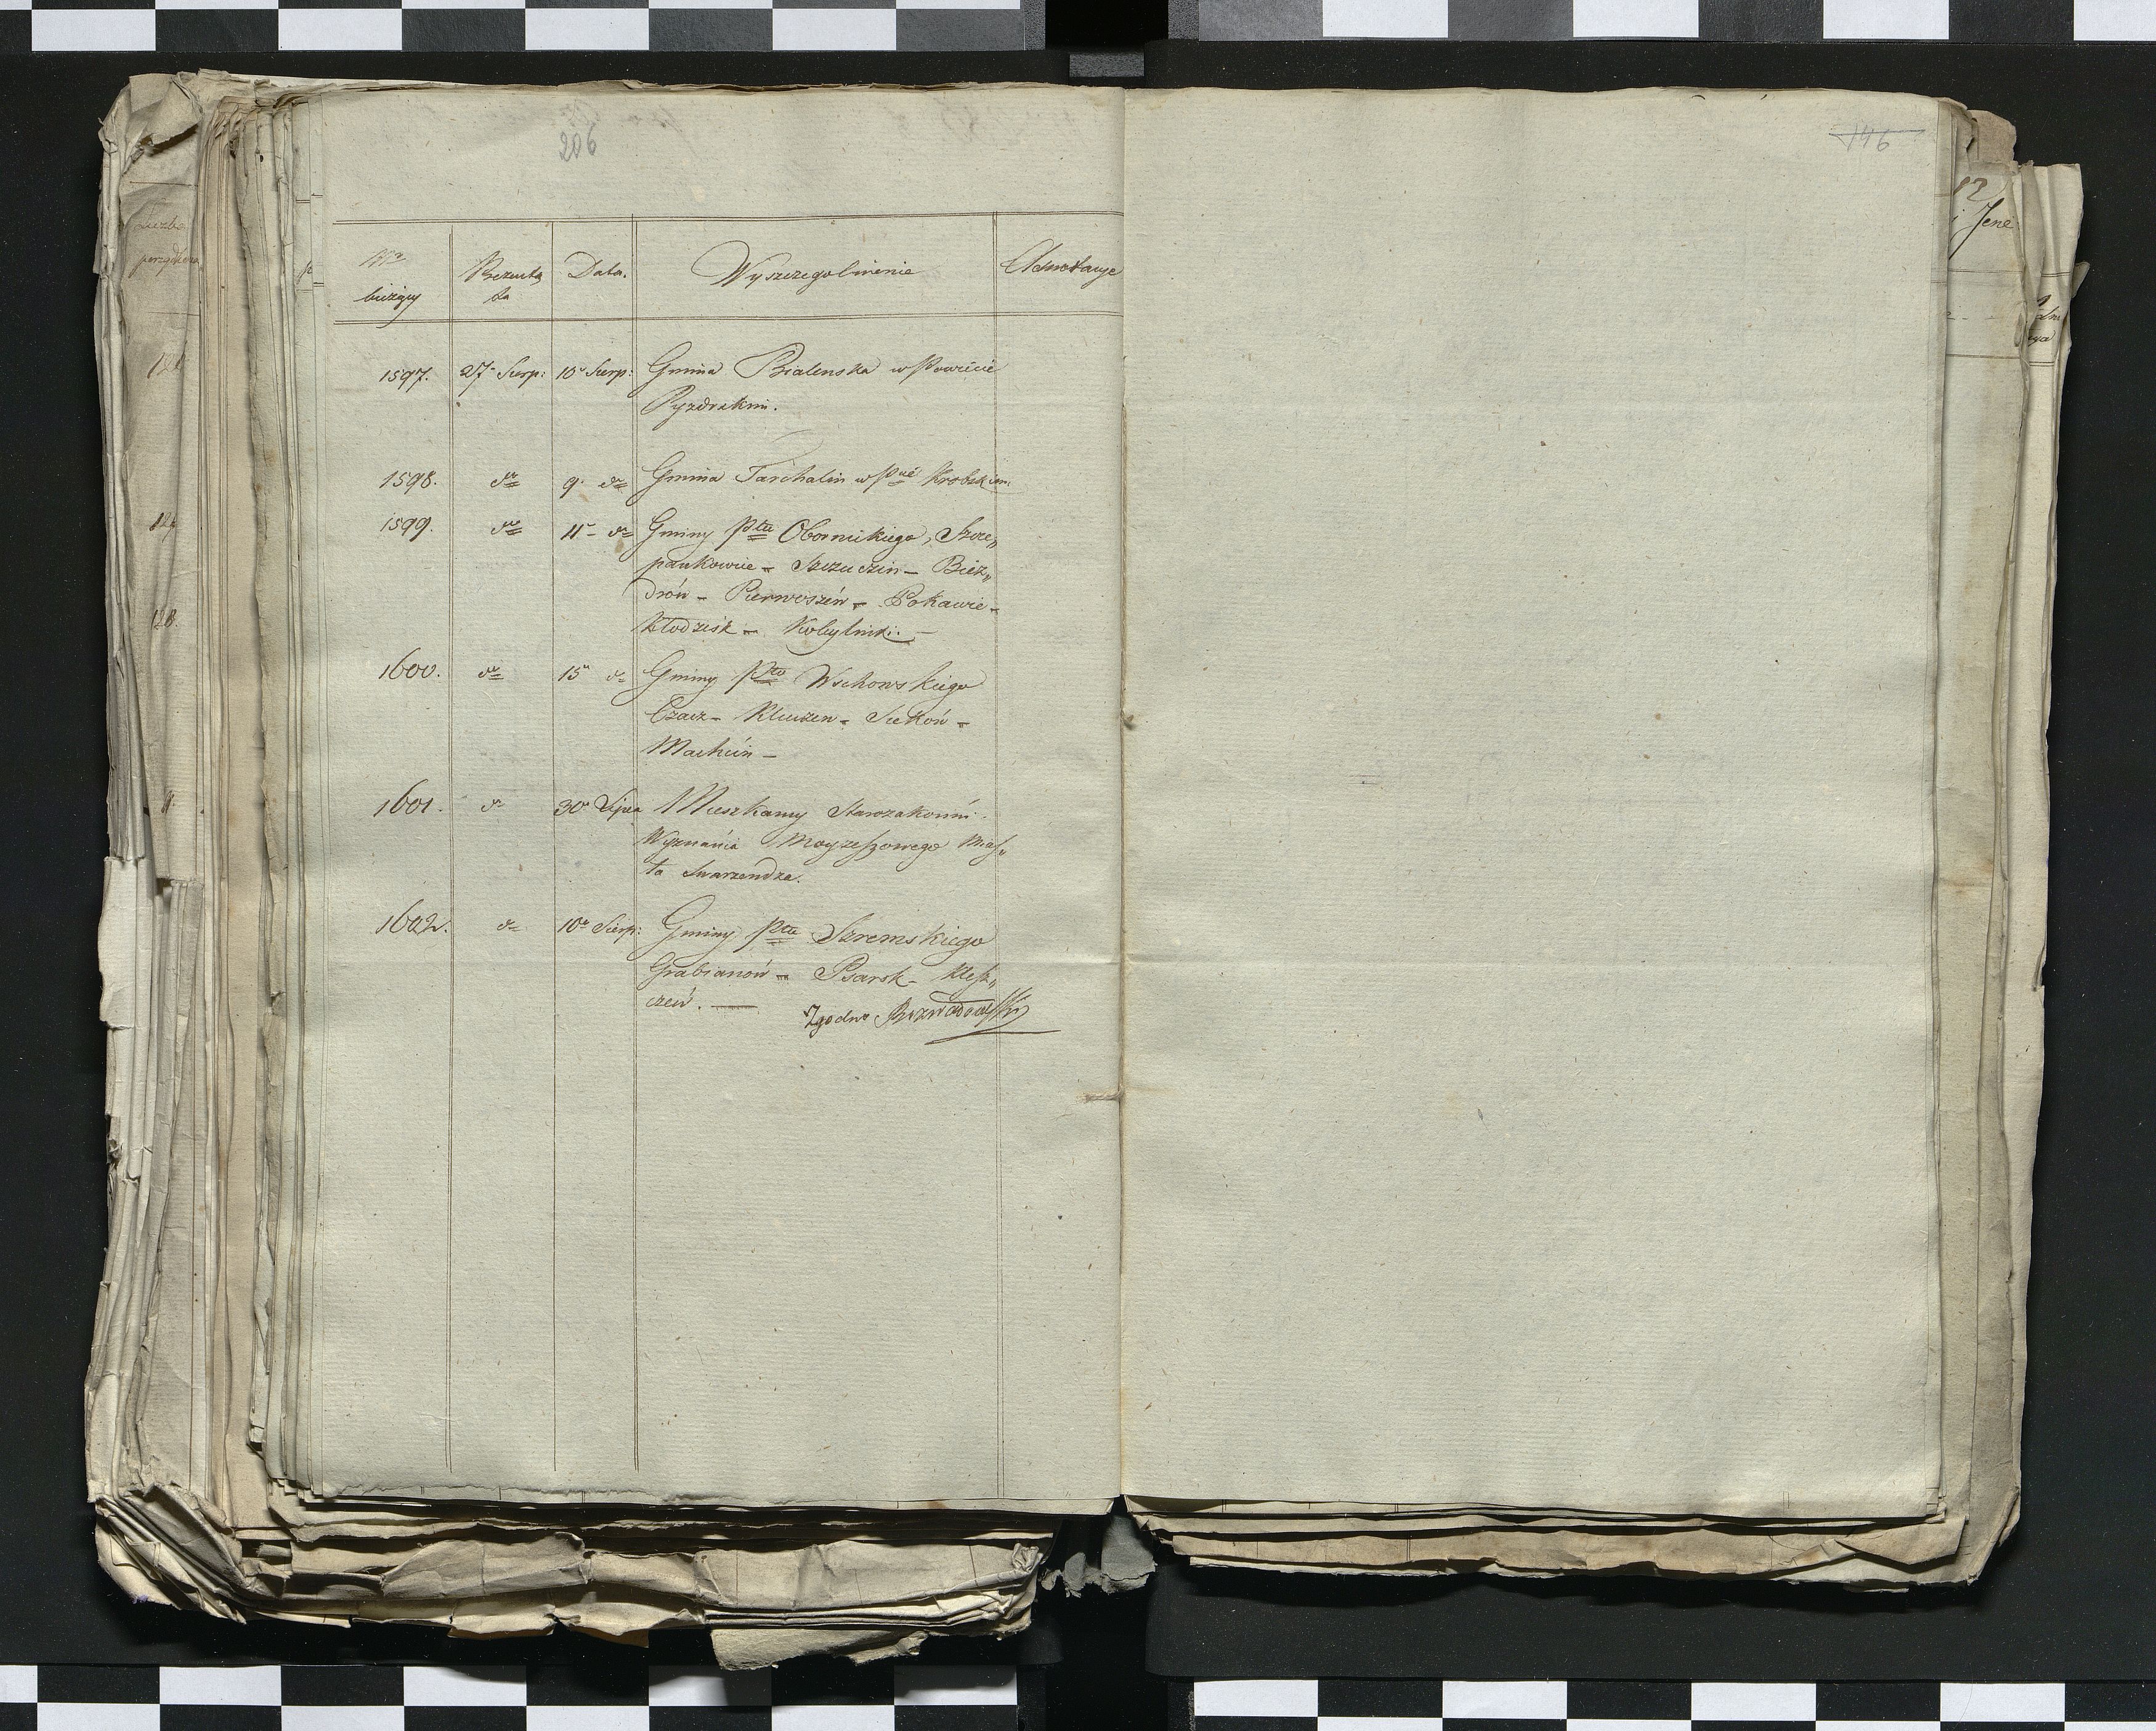 206
146
Nr bieżący | Prezenta | Data. | Wyszczegolnienie | Adnotacye
1597. | 27 Sierp: | 10 Sierp: | Gmina Bialenska w Powiecie
Pyzdrskim.
1598. | do | 9 do | Gmina Tarchalin w Pcie Krobskim
1599. | do | 11 do | Gminy Ptu Obornickiego, Szcze„
pankowice – Szczuczin – Bież„
drów – Pierwoszeń – –
Kłodzisk – Kobylniki. –
1600. | do | 15 do | Gminy Ptu Wschowskiego
Czacz – Kluczew – Siekoń –
Machcin –
1601. | do | 30 Lipca | Mieszkańcy Starozakonni
Wyznania Moyzeszowego Mias„
ta Swarzendza.
1602. | do | 10 Sierp: | Gminy Ptu Szremskiego
Grabianow – Psarsk – Klesz„
czew. —
Zgodno Rozwadowski